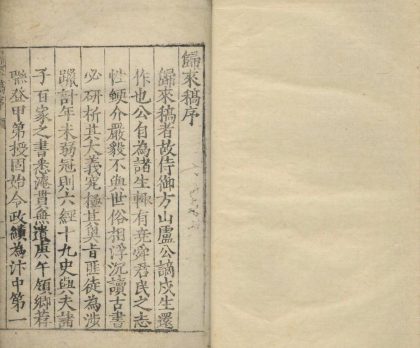 歸來稿序
歸來稿者故侍御方山盧公謫戍生還
作也公自為諸生輒有堯舜君民之志
性鯁介嚴毅不與世俗相浮沉讀古書
必研析其大義究極其奧旨匪徒為涉
躐計年未弱冠則六經十九史與夫諸
子百家之書悉淹貫無遺庚午領鄉荐
聯登甲第授固始令政績為汴中第一